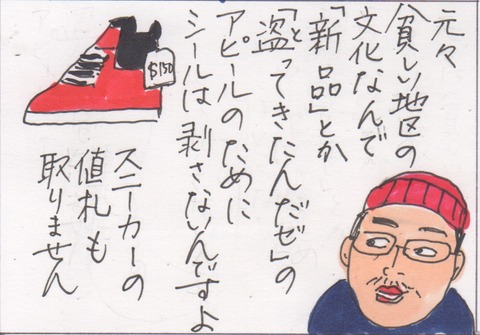 元々
貧しい地区の
文化なんで
「新品」とか
「盗ってきたんだゼ」の
と
アピールのために
シールは剥さないんですよ
$150
スニーカーの
値札も
取りません